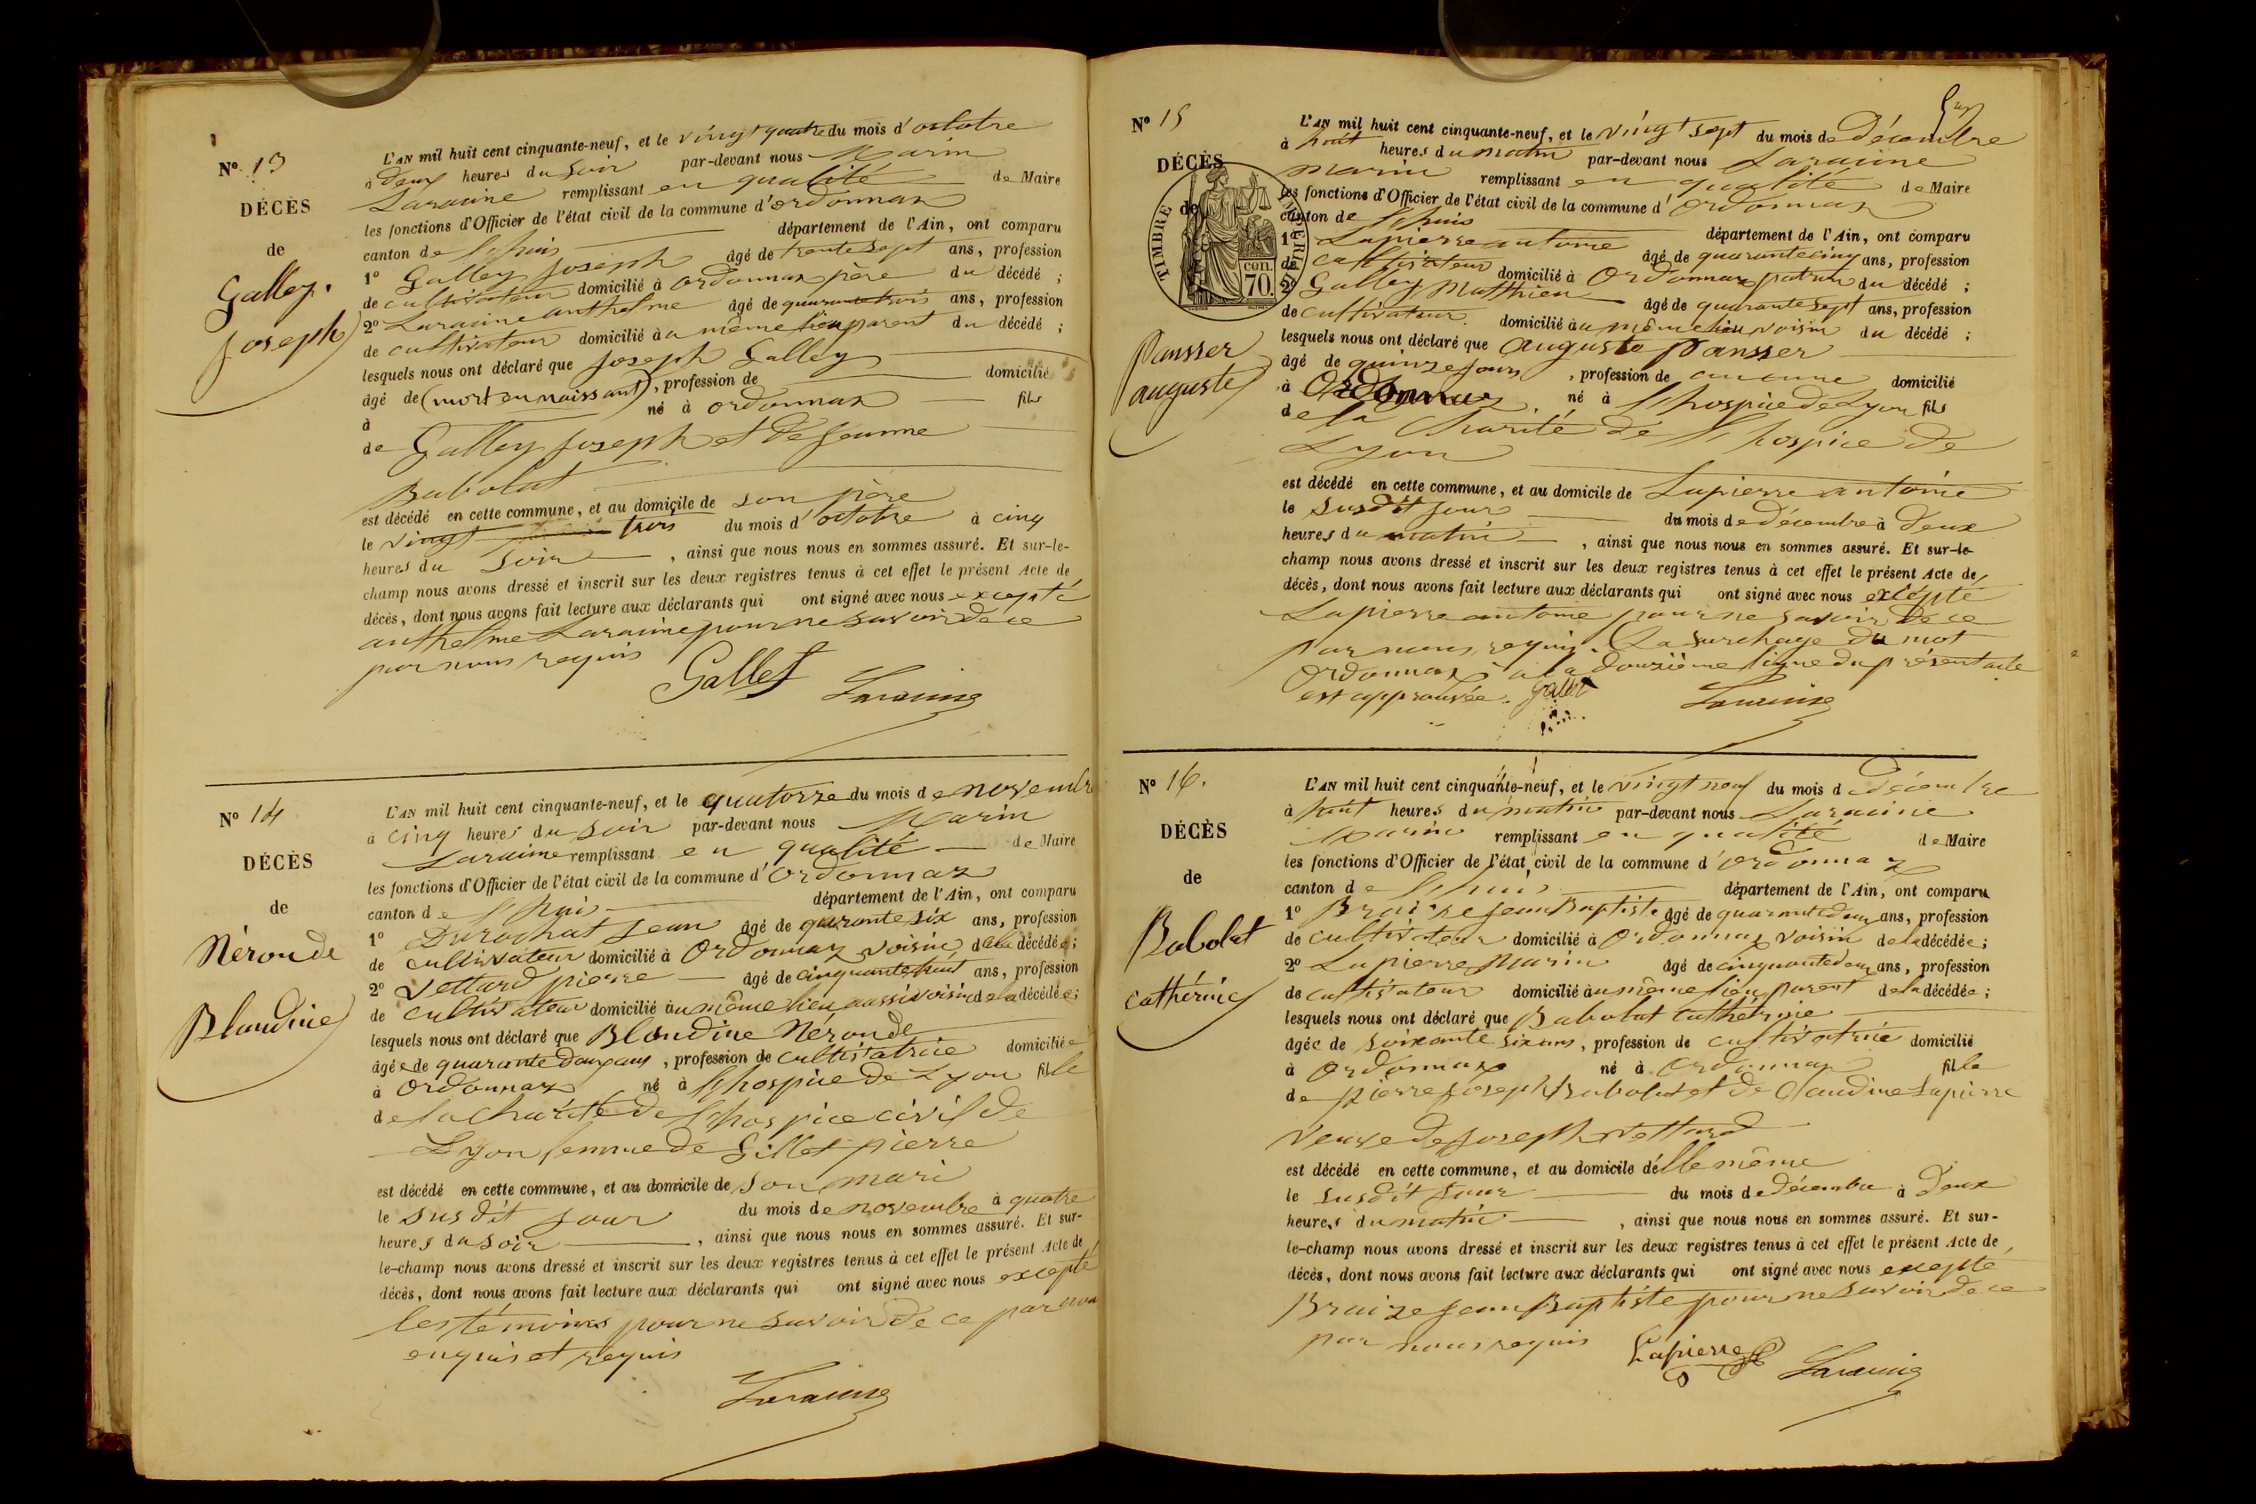 N° 13
DÉCÈS
de
Galley.
Joseph
L'AN mil huit cent cinquante-neuf, et le vingt quatre du mois d'octobre
à deux heures du soir par-devant nous Marin
Laraime remplissant en qualité de Maire
les fonctions d'Officier de l'état civil de la commune d'ordonnax
canton de l'huis département de l'Ain, ont comparu
1° Galley Joseph âgé de trente sept ans, profession
de cultivateur domicilié à ordonnax père du décédé ;
2° Laraime anthelme âgé de quarante trois ans, profession
de cultivateur domicilié au même lieu parent du décédé ;
lesquels nous ont déclaré que Joseph Galley
âgé de (mort en naissant), profession de domicilié
à né à ordonnax fils
de Galley Joseph et de Jeanne
Babolat
est décédé en cette commune, et au domicile de son père
le vingt trois du mois d'octobre à cinq
heures du soir, ainsi que nous nous en sommes assuré. Et sur-le-
champ nous avons dressé et inscrit sur les deux registres tenus à cet effet le présent Acte de
décès, dont nous avons fait lecture aux déclarants qui ont signé avec nous excepté
anthelme Laraime pour ne savoir de ce
par nous requis
Gallet Laraime
N° 14
DÉCÈS
de
Néronde
Blandine
L'AN mil huit cent cinquante-neuf, et le quatorze du mois de novembre
à cinq heures du soir par-devant nous Marin
Laraime remplissant en qualité de Maire
les fonctions d'Officier de l'état civil de la commune d'Ordonnax
canton de l'huis département de l'Ain, ont comparu
1° Durochat Jean âgé de quarante six ans, profession
de cultivateur domicilié à Ordonnax voisin de la décédée ;
2° Vettard pierre âgé de cinquante huit ans, profession
de cultivateur domicilié au même lieu aussi voisin de la décédée ;
lesquels nous ont déclaré que Blandine Néronde
âgée de quarante deux ans, profession de cultivatrice domiciliée
à Ordonnax né à l'hospice de Lyon fille
de la charité de l'hospice civil de
Lyon femme de Gillet pierre
est décédé en cette commune, et au domicile de son mari
le susdit jour du mois de novembre à quatre
heures du soir, ainsi que nous nous en sommes assuré. Et sur-
le-champ nous avons dressé et inscrit sur les deux registres tenus à cet effet le présent Acte de
décès, dont nous avons fait lecture aux déclarants qui ont signé avec nous excepté
les témoins pour ne savoir de ce par nous
enquis et requis
Laraime
N° 15
DÉCÈS
de
TIMBRE IMPÉRIAL
CON.
70.
Pansser
auguste
L'AN mil huit cent cinquante-neuf, et le vingt sept du mois de Décembre
à huit heures du matin par-devant nous Laraime
Marin remplissant en qualité de Maire
les fonctions d'Officier de l'état civil de la commune d'Ordonnax
canton de l'huis département de l'Ain, ont comparu
1° Lapierre antoine âgé de quarante cinq ans, profession
de cultivateur domicilié à Ordonnax patron du décédé ;
2° Galley Matthieu âgé de quarante sept ans, profession
de cultivateur domicilié au même lieu voisin du décédé ;
lesquels nous ont déclaré que auguste Pansser
âgé de quinze jours, profession de aucune domicilié
à Ordonnax, né à l'hospice de Lyon fils
de la Charité de l'hospice de
Lyon
est décédé en cette commune, et au domicile de Lapierre antoine
le susdit jour du mois de décembre à deux
heures du matin, ainsi que nous nous en sommes assuré. Et sur-le-
champ nous avons dressé et inscrit sur les deux registres tenus à cet effet le présent Acte de
décès, dont nous avons fait lecture aux déclarants qui ont signé avec nous excepté
Lapierre antoine pour ne savoir de ce
par nous requis. La surchage du mot
Ordonnax à la douzième ligne du présent acte
est approuvée. Gallet Laraime
N° 16.
DÉCÈS
de
Babolat
Cathérine
L'AN mil huit cent cinquante-neuf, et le vingt neuf du mois de décembre
à huit heures du matin par-devant nous Laraime
Marin remplissant en qualité de Maire
les fonctions d'Officier de l'état civil de la commune d'ordonnax
canton de l'huis département de l'Ain, ont comparu
1° Braize Jean Baptiste âgé de quarante deux ans, profession
de cultivateur domicilié à Ordonnax voisin de la décédée ;
2° Lapierre Marin âgé de cinquante deux ans, profession
de cultivateur domicilié au même lieu parent de la décédée ;
lesquels nous ont déclaré que Babolat Catherine
âgée de soixante six ans, profession de cultivatrice domicilié
à Ordonnax né à Ordonnax fille
de pierre Joseph Babolat et de Claudine Lapierre
veuve de Joseph Vettard
est décédé en cette commune, et au domicile d'elle même
le susdit jour du mois de décembre à deux
heures du matin, ainsi que nous nous en sommes assuré. Et sur-
le-champ nous avons dressé et inscrit sur les deux registres tenus à cet effet le présent Acte de
décès, dont nous avons fait lecture aux déclarants qui ont signé avec nous excepté
Braize Jean Baptiste pour ne savoir de ce
par nous requis Lapierre Laraime